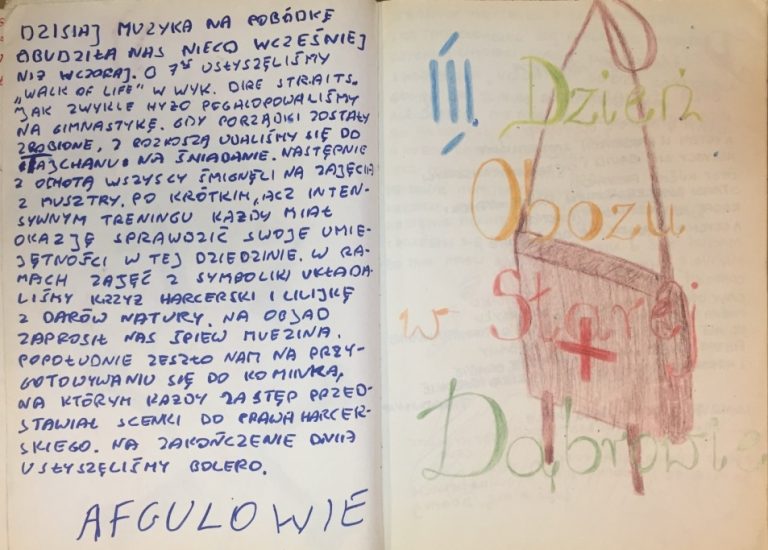 DZISIAJ MUZYKA NA POBÓDKĘ
OBUDZIŁA NAS NIECO WCZEŚNIEJ
NIŻ WCZORAJ. O 7³⁰ USŁYSZELIŚMY
„WALK OF LIFE" W WYK. DIRE STRAITS.
JAK ZWYKLE HYŻO POGALOPOWALIŚMY
NA GIMNASTYKĘ. GDY PORZĄDKI ZOSTAŁY
ZROBIONE, Z ROZKOSZĄ UDALIŚMY SIĘ DO
TAJCHANU NA ŚNIADANIE. NASTĘPNIE
Z OCHOTĄ WSZYSCY ŚMIGNĘLI NA ZAJĘCIA
Z MUSZTRY. PO KRÓTKIM, ACZ INTEN-
SYWNYM TRENINGU KAŻDY MIAŁ
OKAZJĘ SPRAWDZIĆ SWOJE UMIE-
JĘTNOŚCI W TEJ DZIEDZINIE. W RA-
MACH ZAJĘĆ Z SYMBOLIKI UKŁADA-
LIŚMY KRZYŻ HARCERSKI I LILIJKĘ
Z DARÓW NATURY. NA OBIAD
ZAPROSIŁ NAS ŚPIEW MUEZINA.
POPOŁUDNIE ZESZŁO NAM NA PRZY-
GOTOWYWANIU SIĘ DO KOMINKA,
NA KTÓRYM KAŻDY ZASTĘP PRZED-
STAWIAŁ SCENKI DO PRAWA HARCER-
SKIEGO. NA ZAKOŃCZENIE DNIA
USŁYSZĘLIŚMY BOLERO.
AFGULOWIE
III. Dzień
Obozu
w Starej
Dąbrowie